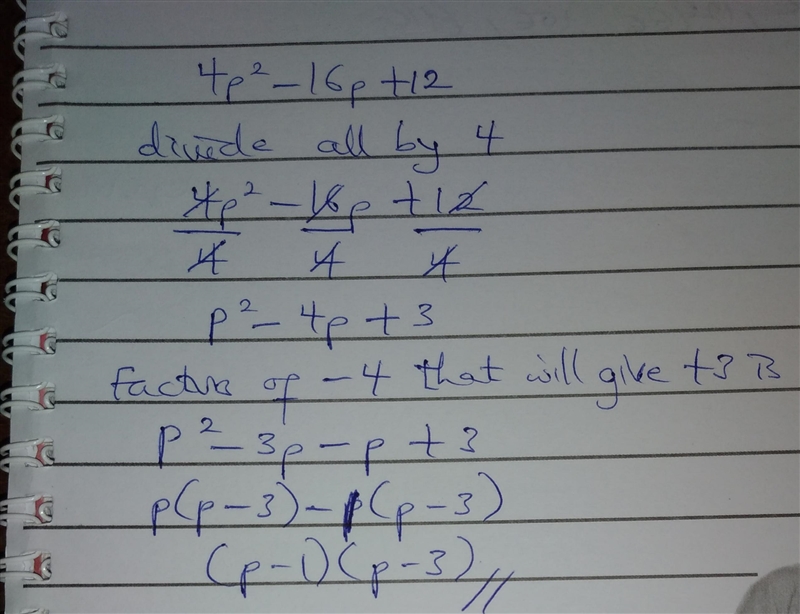 4p² - 16p + 12
divide all by 4
4p²/4 - 16p/4 + 12/4
p² - 4p + 3
factors of -4 that will give +3 is
p² - 3p - p + 3
p(p - 3) - 1(p - 3)
(p - 1)(p - 3)//